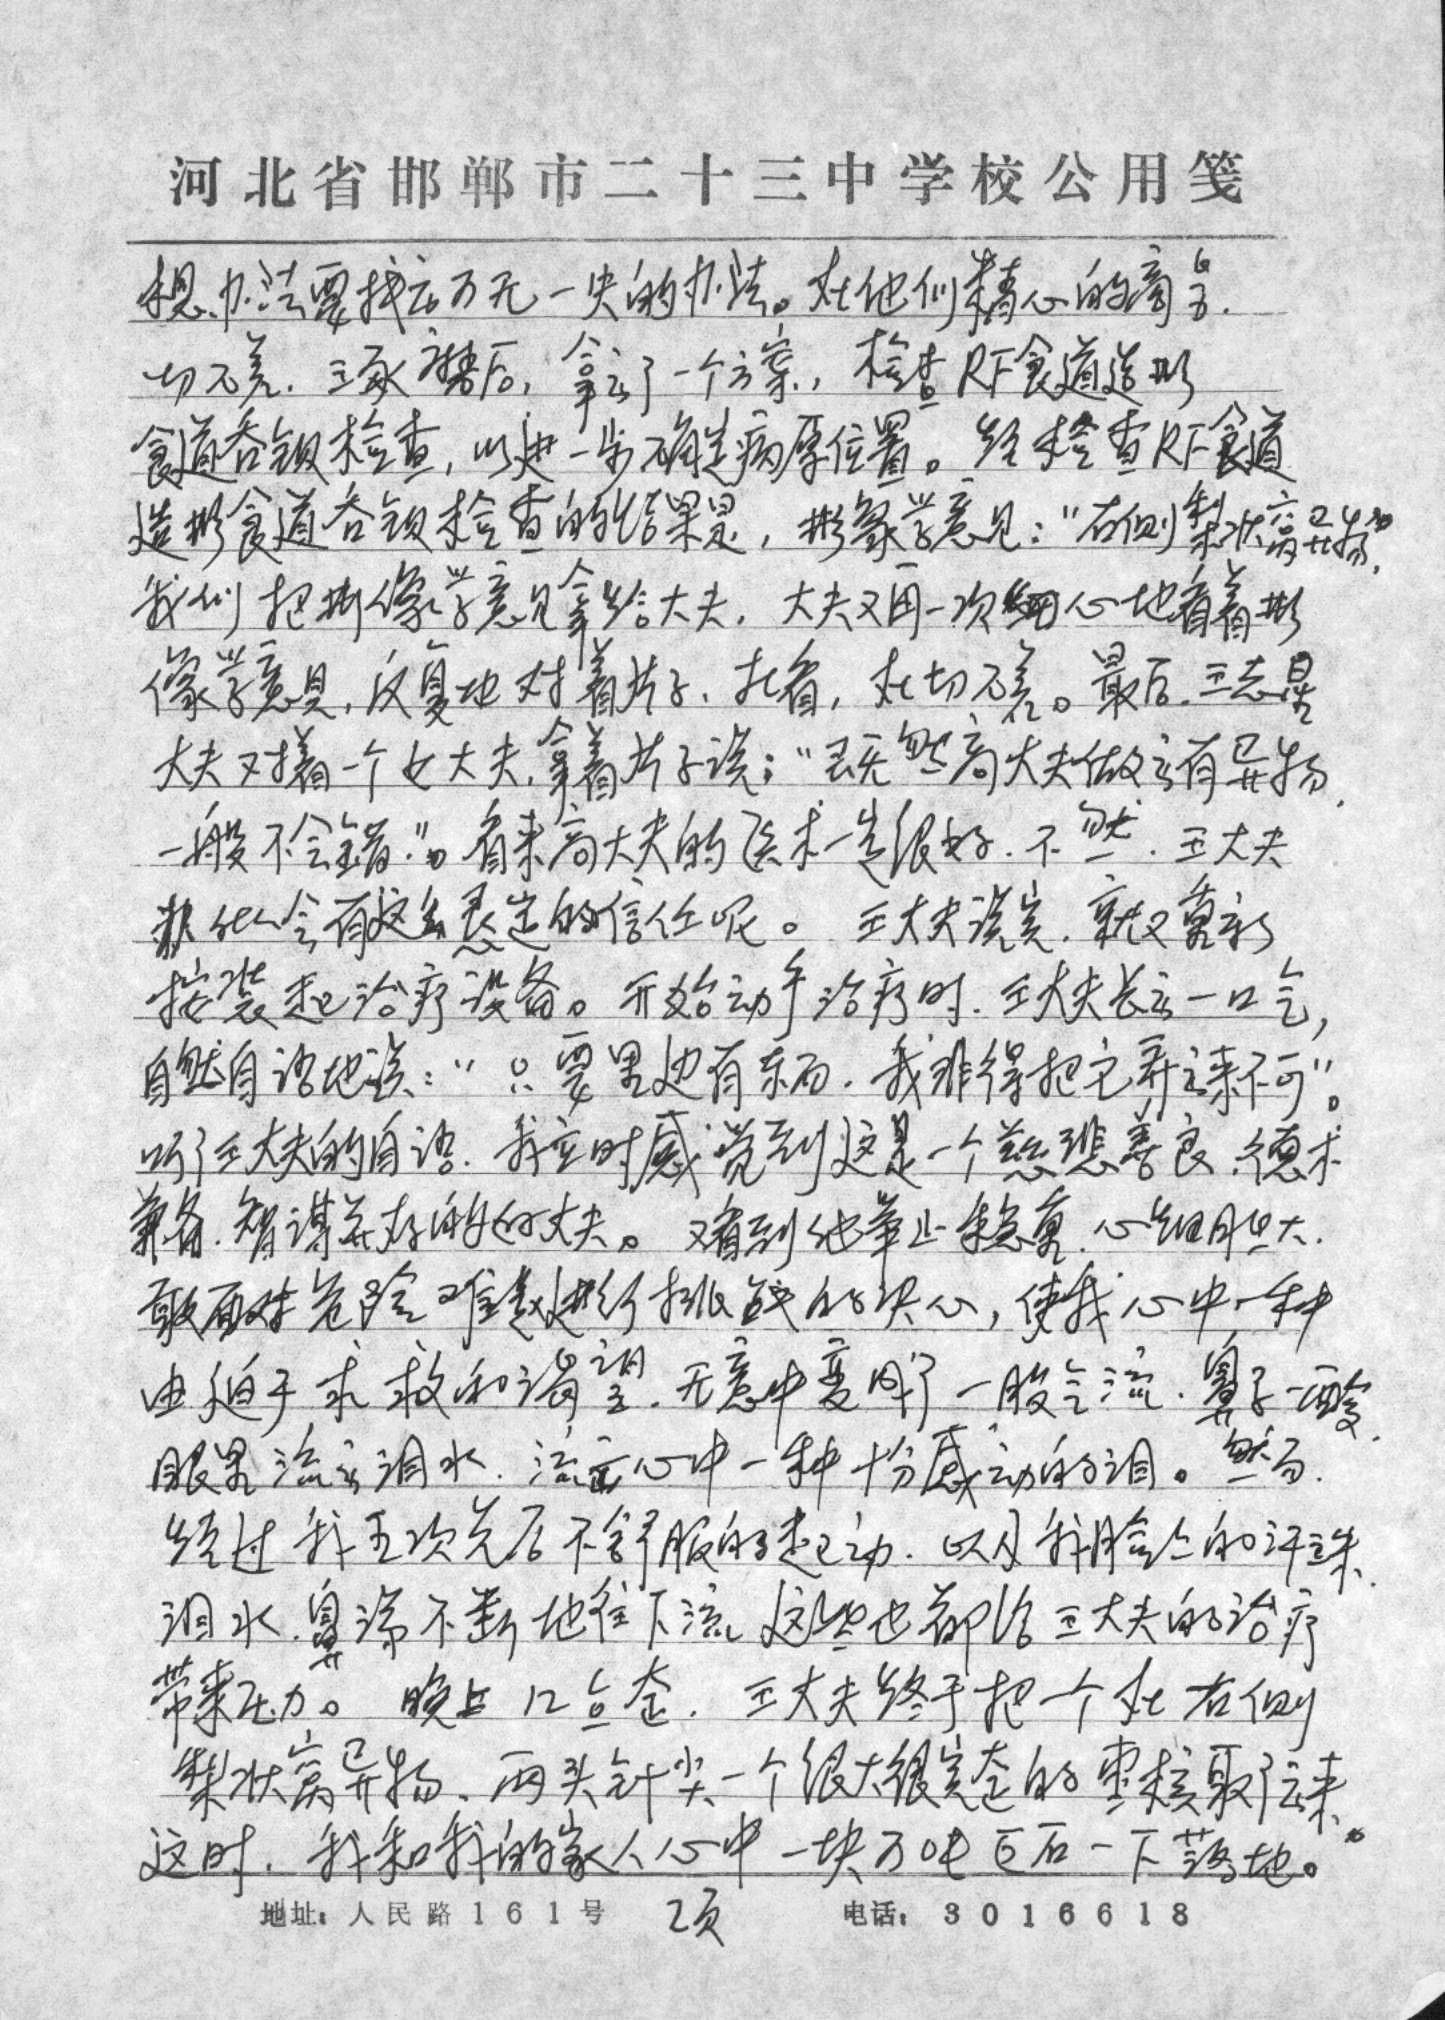 河北省邯郸市二十三中学校公用笺
想办法要找出万无一失的办法。在他们精心的商与.
切磋.琢磨后，拿出了一个方案，检查RF食道造影
食道吞钡检查，以进一步确定病原位置。经检查RF食道
造影食道吞钡检查的结果是，影象学意见："右侧梨状窝异物"。
我们把影像学意见拿给大夫.大夫又再一次细心地看着影
像学意见，反复地对着片子.在看，在切磋。最后.王志星
大夫对着一个女大夫，拿着片子说："既然高大夫做出有异物，
一般不会错."。看来高大夫的医术一定很好.不然.王大夫
会有这么忠的信任呢。王大夫说完.就又重新
按装起治疗设备。开始动手治疗时.王大夫长出一口气，
自然自语地说："只要里边有东西.我非得把它弄出来不可"。
听了王大夫的自语.我应时感觉到这是一个慈悲善良、德术
兼备.智谋并存的好大夫。又看到他举止稳重.心细胆大.
敢面对危险难题进行挑战的决心，使我心中一种
由迫于求救和渴望.无意中变成了一股气流.鼻子一酸，
眼里流出泪水.流出心中一种十份感动的泪。然而.
经过我五次先后不舒服的起动.以及我脸上的汗珠、
泪水.鼻涕不断地往下流 这些也都给王大夫的治疗
带来压力。晚上12点整.王大夫终于把一个在右侧
梨状窝异物、两头针尖一个很大很完整的枣核取了出来。
这时.我和我的家人心中一块万吨巨石一下落地。
地址：人民路161号 2页 电话：3016618